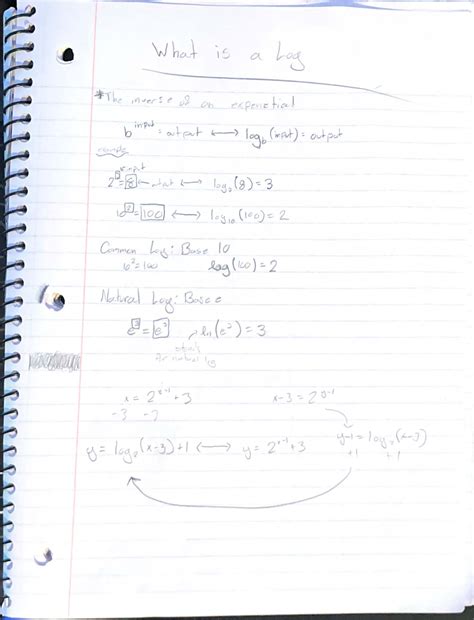 What is a Log
*The inverse of an exponetial
b^input = output ⟷ log_b(input) = output
example
2^3 = 8 ← output ⟷ log_2(8) = 3
10^2 = 100 ⟷ log_10(100) = 2
Common Log: Base 10
log(100) = 2
Natural Log: Base e
e^3 = e^3 ln(e^3) = 3
for natural log
+3 x-3 = 2
-3 -3
y = log_2(x-3)+1 ⟷ y = 2^x-1+3 y-1 = log_2(x-3)
+1 +1